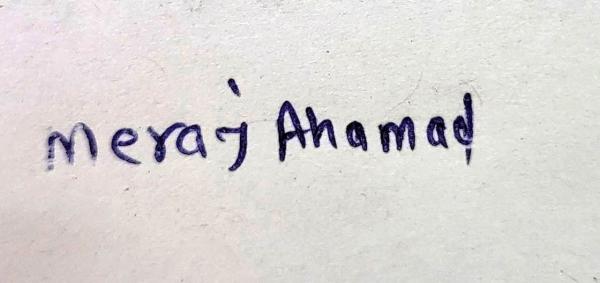 Meraj Ahamad